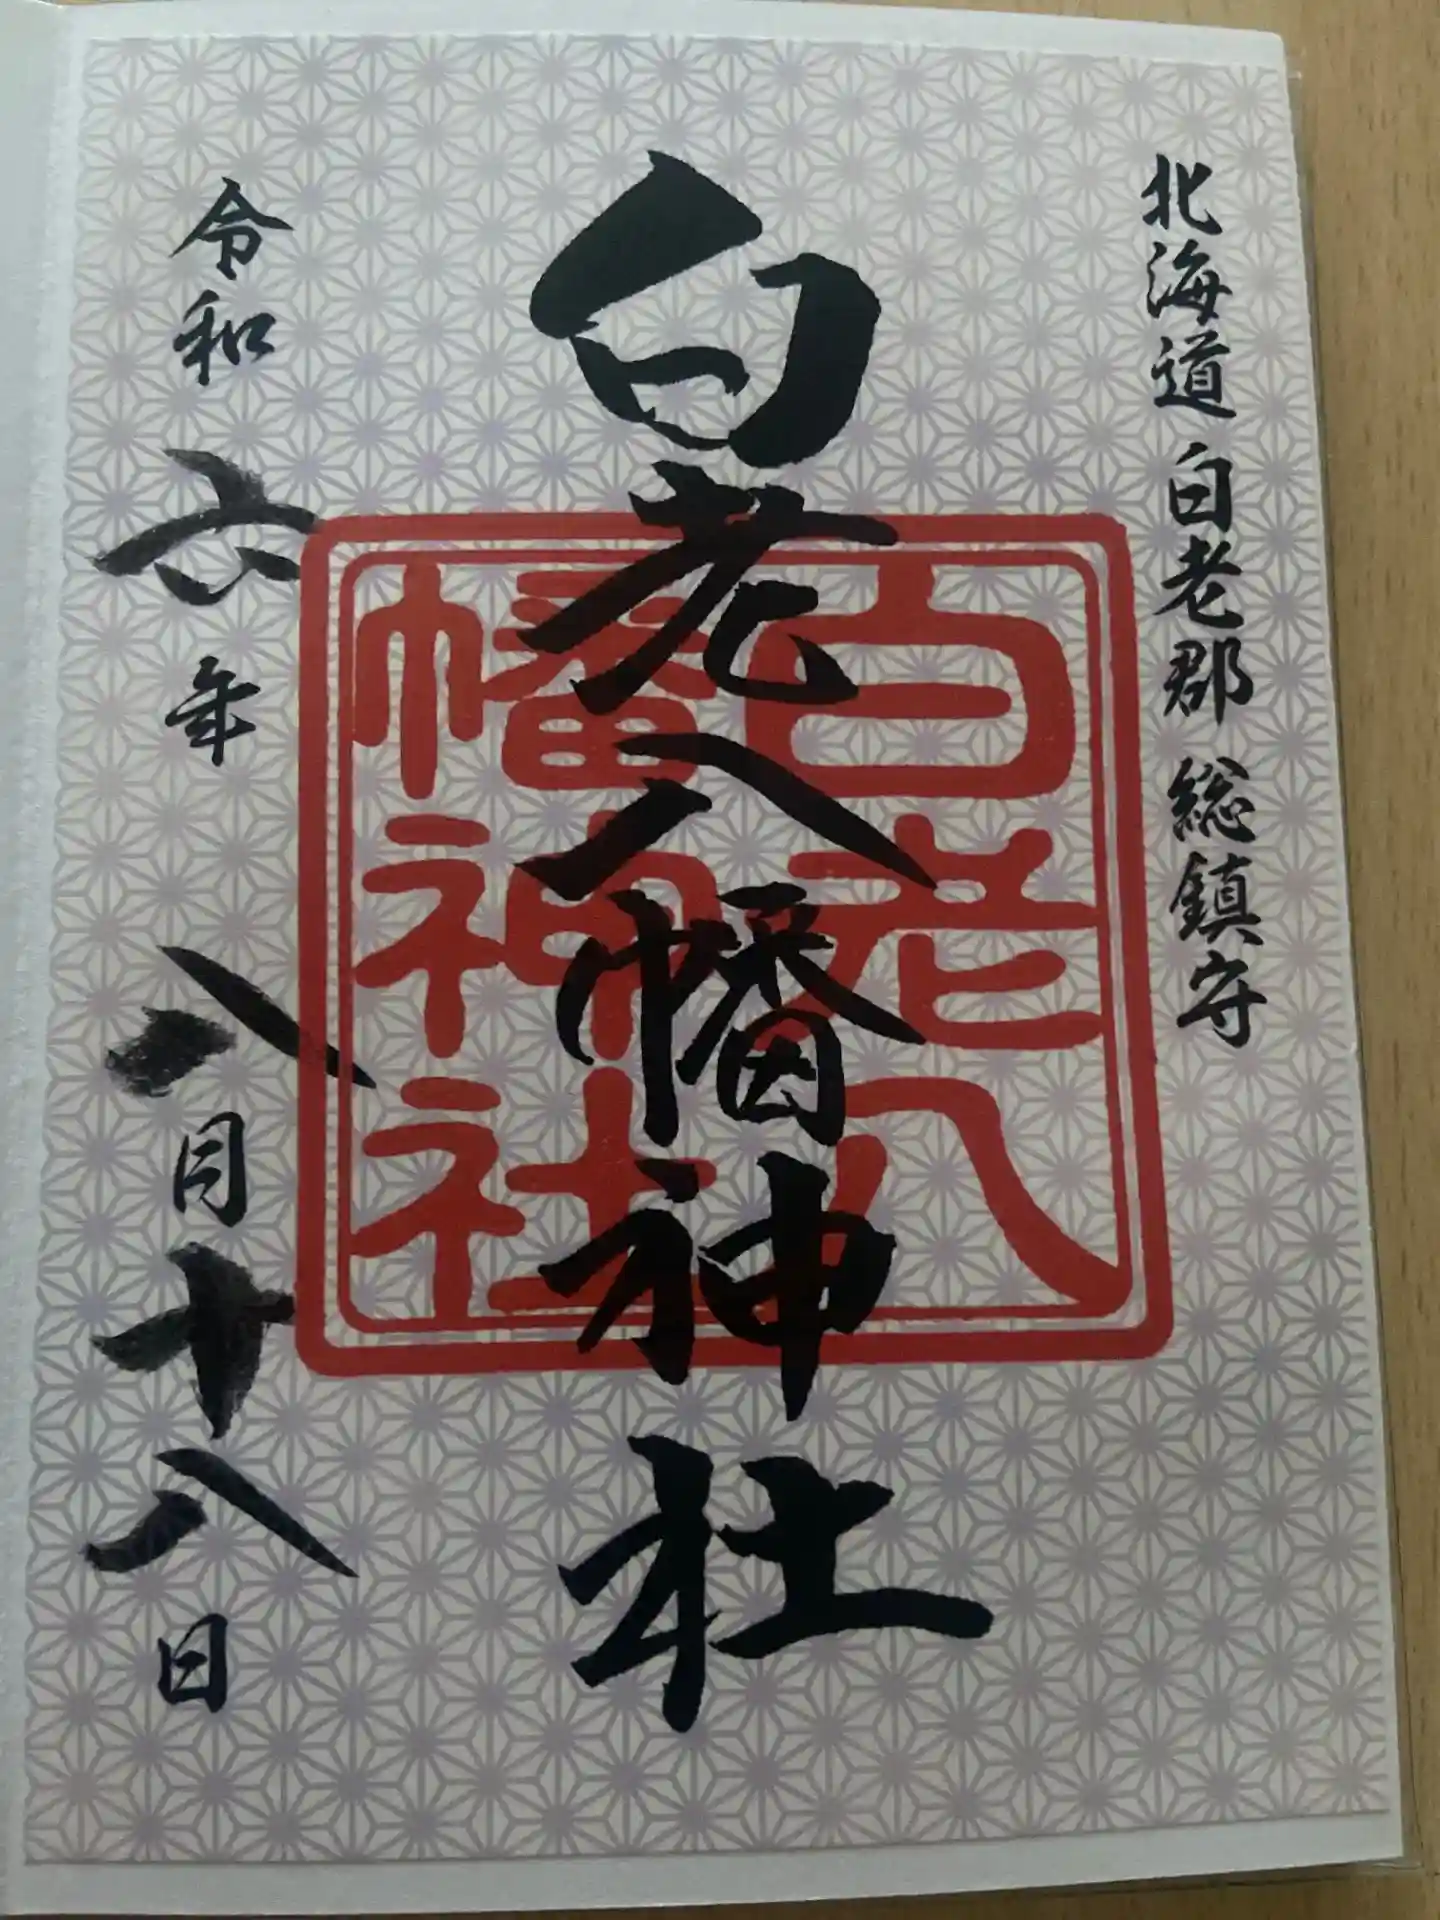 北海道 白老郡 総鎮守
白老八幡神社
白老八
幡神社
令和六年八月十八日